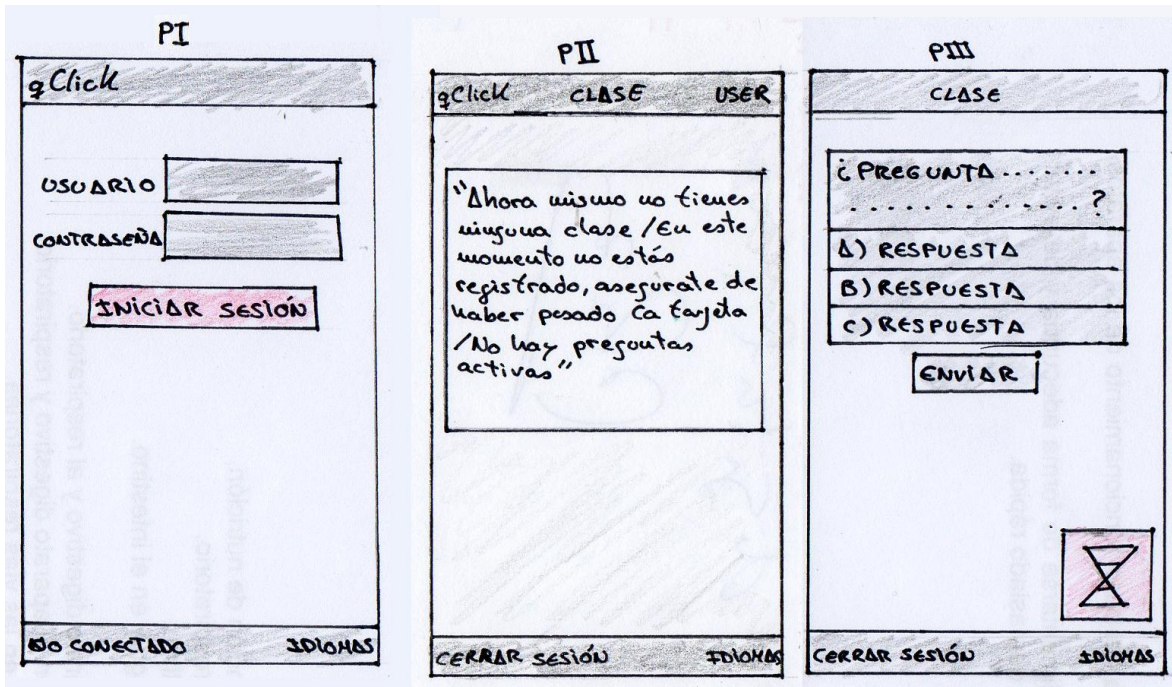 PI
qClick
USUARIO
CONTRASEÑA
INICIAR SESIÓN
NO CONECTADO IDIOMAS
PII
qClick CLASE USER
"Ahora mismo no tienes
ninguna clase /En este
momento no estás
registrado, asegurate de
haber pasado la tarjeta
/No hay preguntas
activas"
CERRAR SESIÓN IDIOMAS
PIII
CLASE
¿PREGUNTA.......
..............?
A) RESPUESTA
B) RESPUESTA
C) RESPUESTA
ENVIAR
CERRAR SESIÓN IDIOMAS